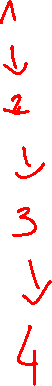 1
↓
2
↓
3
↓
4